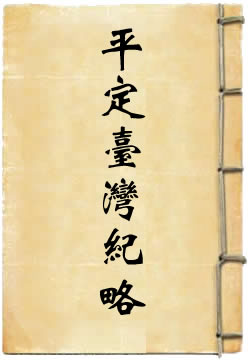 平定臺灣紀略